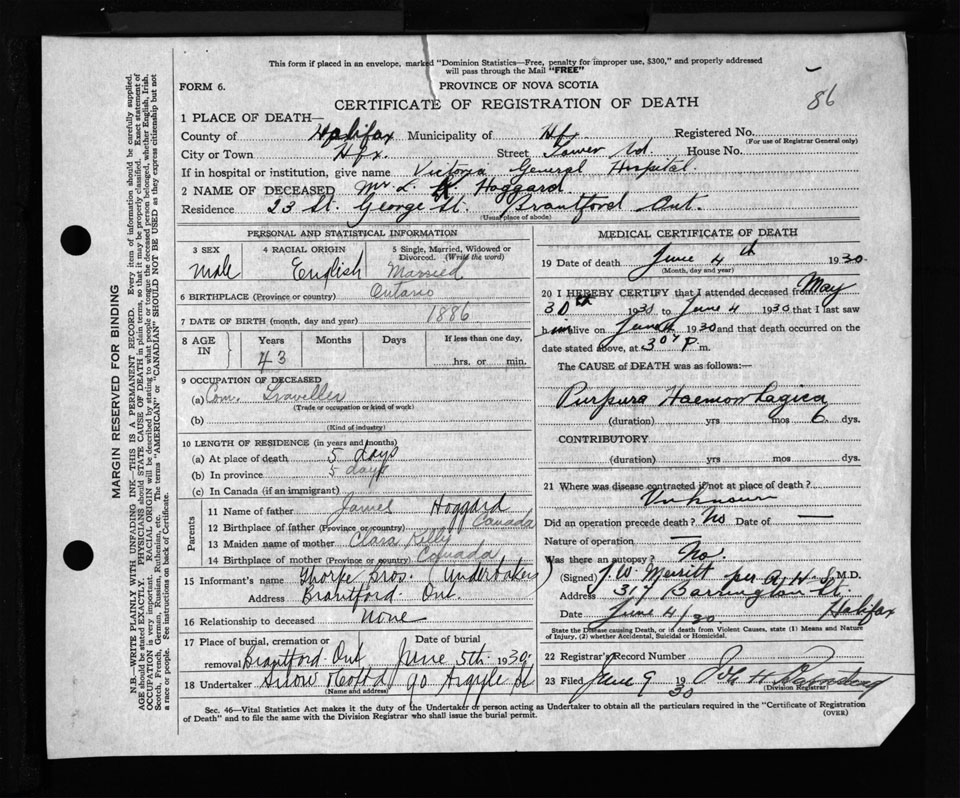 This form if placed in an envelope, marked "Dominion Statistics—Free, penalty for improper use, $300," and properly addressed
will pass through the Mail "FREE"
FORM 6.
PROVINCE OF NOVA SCOTIA
86
CERTIFICATE OF REGISTRATION OF DEATH
1 PLACE OF DEATH—
County of Halifax Municipality of Hfx. Registered No.
(For use of Registrar General only)
City or Town Hfx. Street Tower Rd. House No.
If in hospital or institution, give name Victoria General Hospital.
2 NAME OF DECEASED Mr. L. Hoggard
Residence 23 St. George St. Brantford Ont.
(Usual place of abode)
PERSONAL AND STATISTICAL INFORMATION
3 SEX 4 RACIAL ORIGIN 5 Single, Married, Widowed or Divorced. (Write the word)
Male English Married
6 BIRTHPLACE (Province or country) Ontario
7 DATE OF BIRTH (month, day and year) 1886
8 AGE IN Years Months Days If less than one day,
43 hrs. or min.
9 OCCUPATION OF DECEASED
(a) Com. Traveller
(Trade or occupation or kind of work)
(b)
(Kind of industry)
10 LENGTH OF RESIDENCE (in years and months)
(a) At place of death 5 days
(b) In province 5 days
(c) In Canada (if an immigrant)
Parents
11 Name of father James Hoggard
12 Birthplace of father (Province or country) Canada
13 Maiden name of mother Clara Kelly
14 Birthplace of mother (Province or country) Canada
15 Informant's name Thorpe Bros. (Undertakers)
Address Brantford Ont.
16 Relationship to deceased None
17 Place of burial, cremation or removal Date of burial
Brantford Ont June 5th. 1930
18 Undertaker Snow 90 Argyle St
(Name and address)
MEDICAL CERTIFICATE OF DEATH
19 Date of death June 4th 1930
(Month, day and year)
20 I HEREBY CERTIFY that I attended deceased from May
30th 1930 to June 4 1930 that I last saw
him alive on June 4 1930 and that death occurred on
date stated above, at P.m.
The CAUSE of DEATH was as follows:—
Purpura Haemorrhagica
(duration) yrs mos 6 dys.
CONTRIBUTORY
(duration) yrs mos dys.
21 Where was disease contracted if not at place of death?
Unknown
Did an operation precede death? No Date of —
Nature of operation —
Was there an autopsy? No.
(Signed) J. W. Merritt per A. H. S. M.D.
Address 317 Barrington St,
Halifax
Date June 4/30
State the Disease causing Death, or if death from Violent Causes, state (1) Means and Nature
of Injury, (2) whether Accidental, Suicidal or Homicidal.
22 Registrar's Record Number
23 Filed June 9 1930
(Division Registrar)
Sec. 46—Vital Statistics Act makes it the duty of the Undertaker or person acting as Undertaker to obtain all the particulars required in the "Certificate of Registration
of Death" and to file the same with the Division Registrar who shall issue the burial permit.
(OVER)
MARGIN RESERVED FOR BINDING
N.B.—WRITE PLAINLY WITH UNFADING INK—THIS IS A PERMANENT RECORD. Every item of information should be carefully supplied.
AGE should be stated EXACTLY. PHYSICIANS should STATE CAUSE OF DEATH in plain terms, so that it may be properly classified. Exact statement of
OCCUPATION is very important. RACIAL ORIGIN will be described by stating to what people or tongue the deceased person belonged, whether English, Irish,
Scotch, French, German, Russian, Ruthenian, etc. The terms "AMERICAN" or "CANADIAN" SHOULD NOT BE USED as they express citizenship but not
a race or people. See instructions on back of Certificate.